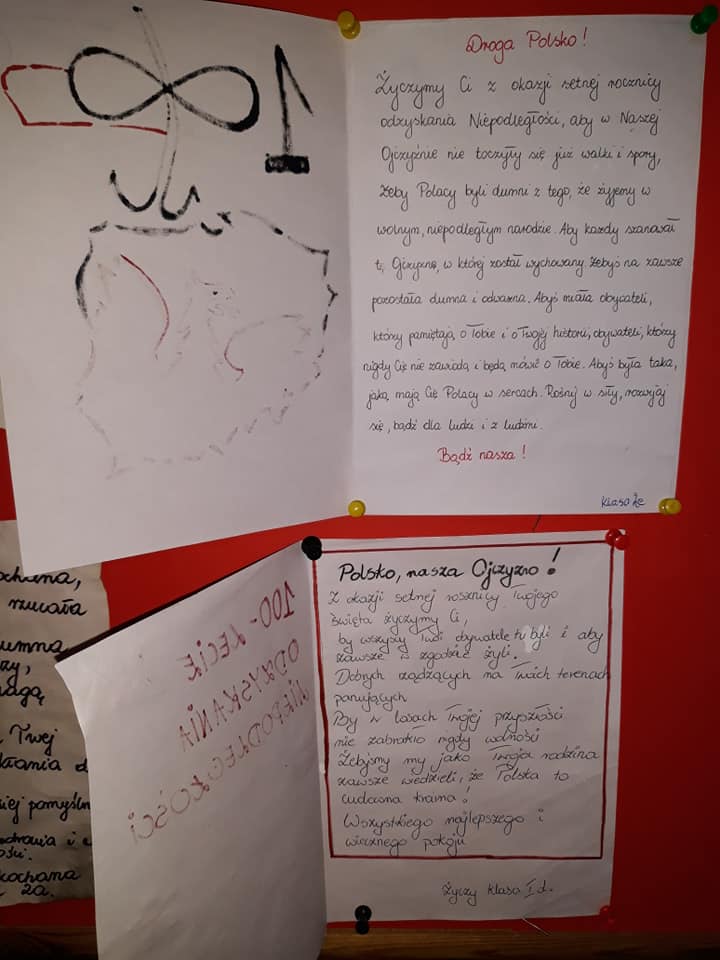 Droga Polsko!
Życzymy Ci z okazji setnej rocznicy
odzyskania Niepodległości, aby w Naszej
Ojczyźnie nie toczyły się już walki i spory,
żeby Polacy byli dumni z tego, że żyjemy w
wolnym, niepodległym narodzie. Aby każdy szanował
tę Ojczyznę, w której został wychowany. Żebyś na zawsze
pozostała dumna i odważna. Abyś miała obywateli,
którzy pamiętają o Tobie i o Twojej historii, obywateli, którzy
nigdy Cię nie zawiodą i będą mówić o Tobie. Abyś była taka,
jaką mają Cię Polacy w sercach. Rośnij w siły, rozwijaj
się, bądź dla ludzi i z ludźmi.
Bądź nasza!
klasa
100-LECIE
ODZYSKANIA
NIEPODLEGŁOŚCI
Polsko, nasza Ojczyzno!
Z okazji setnej rocznicy Twojego
święta życzymy Ci,
by wszyscy Twoi obywatele tu byli i aby
zawsze w zgodzie żyli.
Dobrych rządzących na Twoich terenach
panujących
By w losach Twojej przyszłości
nie zabrakło nigdy wolności
Żebyśmy my jako Twoja rodzina
zawsze wiedzieli, że Polska to
cudowna kraina!
Wszystkiego najlepszego i
wiecznego pokoju
życzy klasa I d.
umna
Twej
2a.